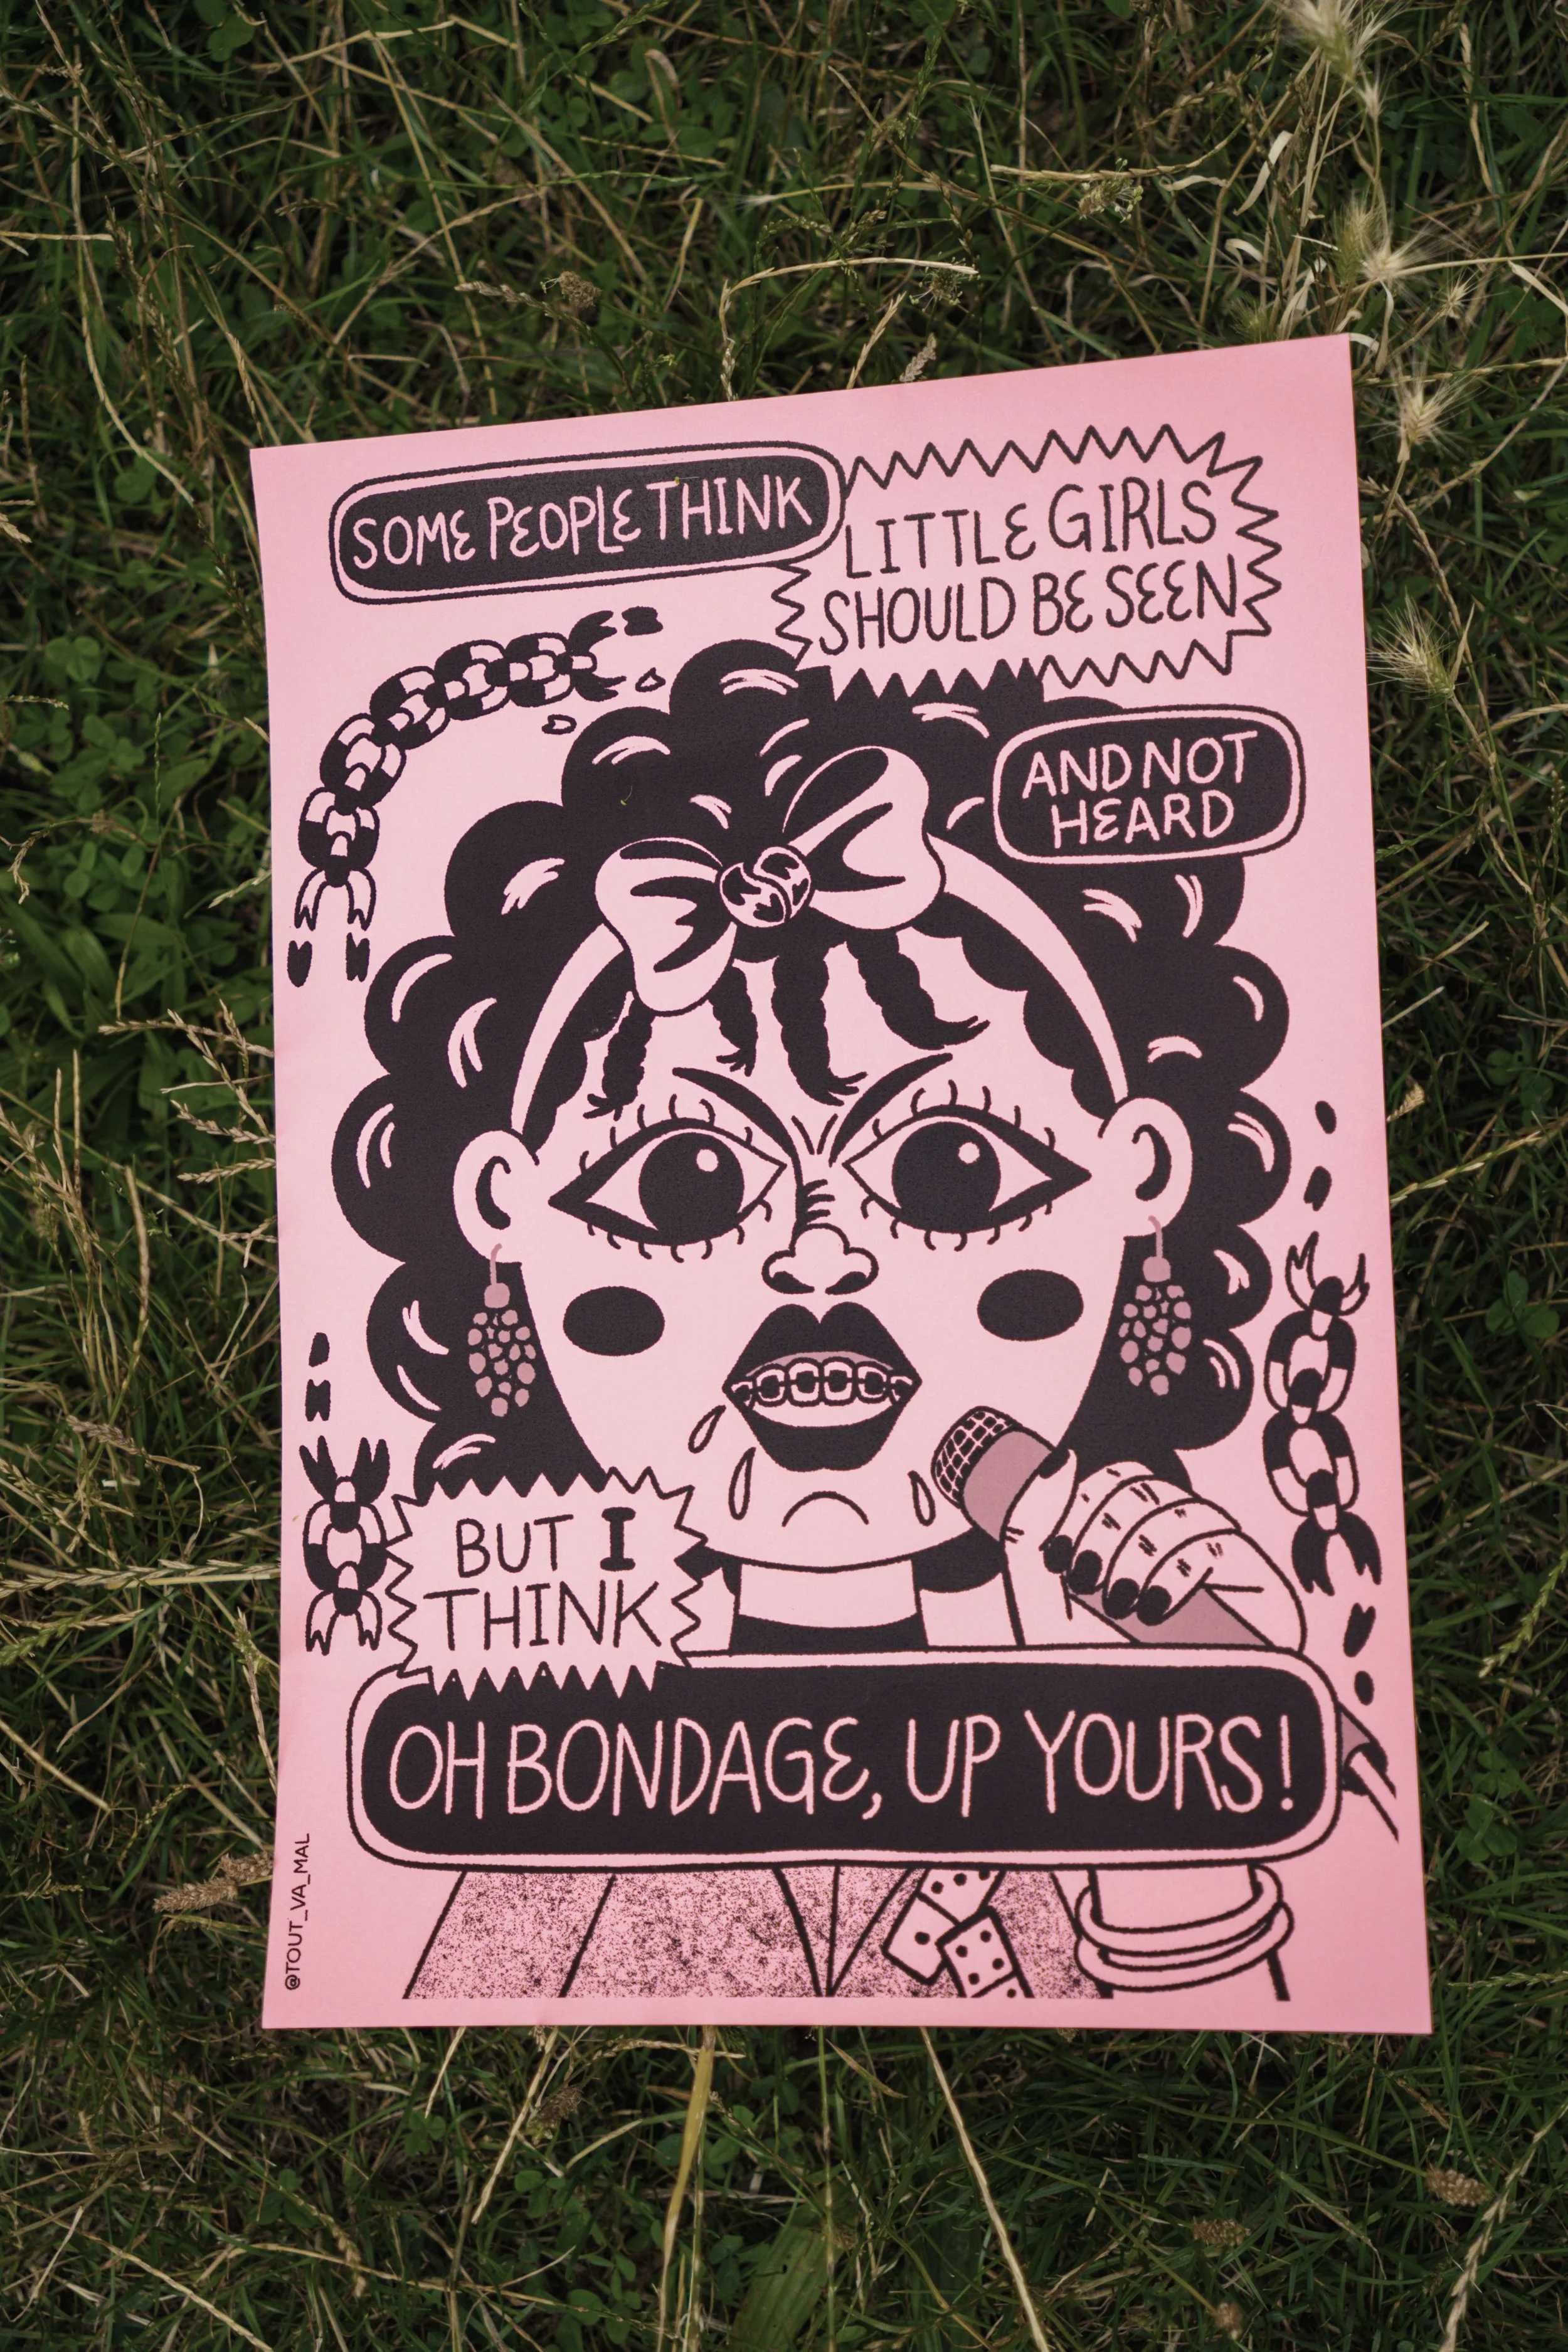 SOME PEOPLE THINK
LITTLE GIRLS
SHOULD BE SEEN
AND NOT
HEARD
BUT I
THINK
OH BONDAGE, UP YOURS!
@TOUT_VA_MAL